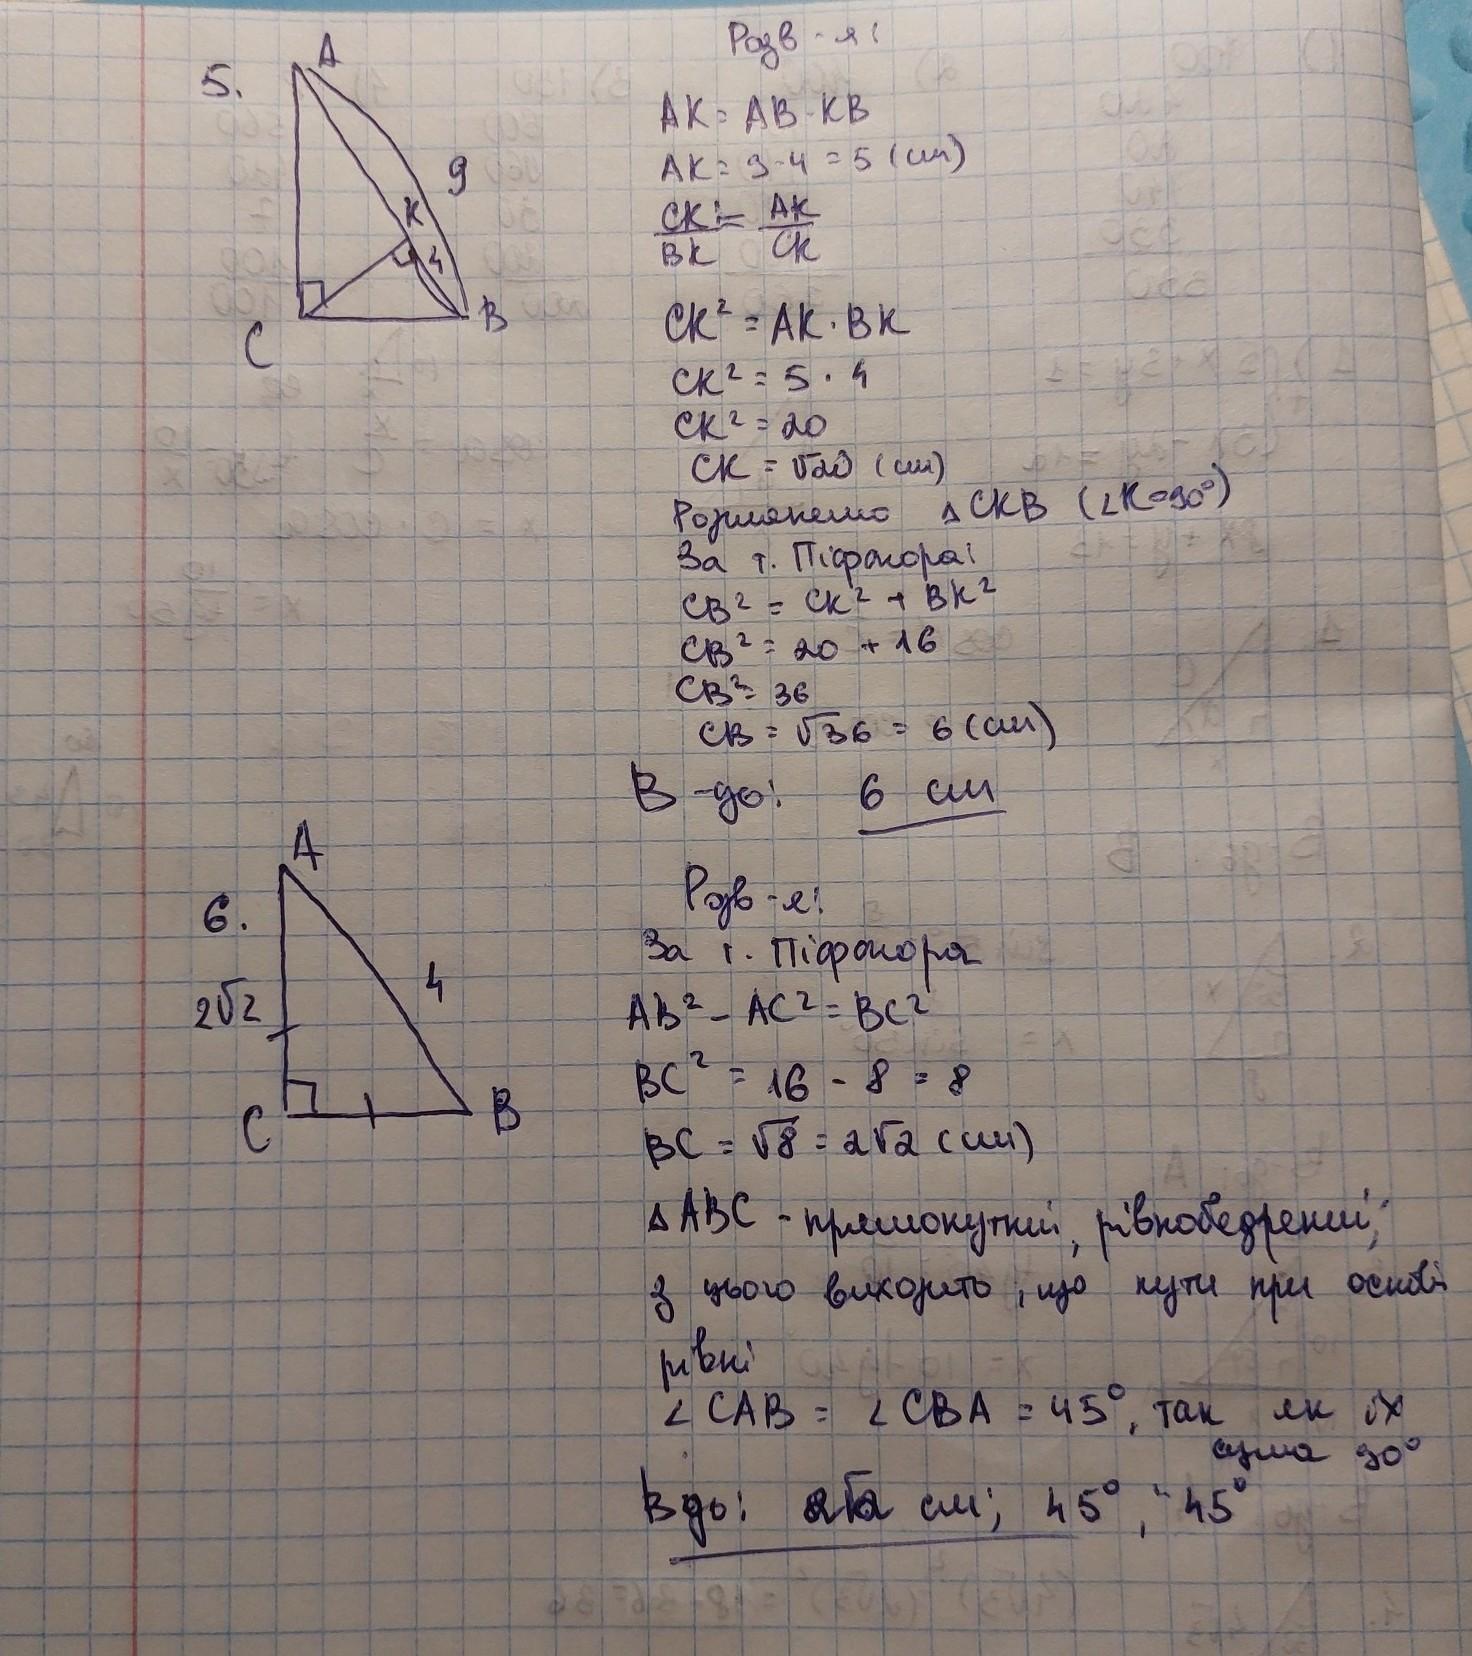 5.
A
9
К
4
C
B
Розв-я:
AK = AB - KB
AK = 9 - 4 = 5 (см)
CK/BK = AK/CK
CK² = AK · BK
CK² = 5 · 4
CK² = 20
CK = √20 (см)
Розглянемо △CKB (∠K=90°)
За т. Піфагора:
CB² = CK² + BK²
CB² = 20 + 16
CB² = 36
CB = √36 = 6 (см)
В-дь: 6 см
6.
A
2√2
4
C
B
Розв-я:
За т. Піфагора
AB² - AC² = BC²
BC² = 16 - 8 = 8
BC = √8 = 2√2 (см)
△ABC - прямокутний, рівнобедрений;
з цього виходить, що кути при основі
рівні
∠CAB = ∠CBA = 45°, так як їх
сума 90°
В-дь: 2√2 см; 45°, 45°